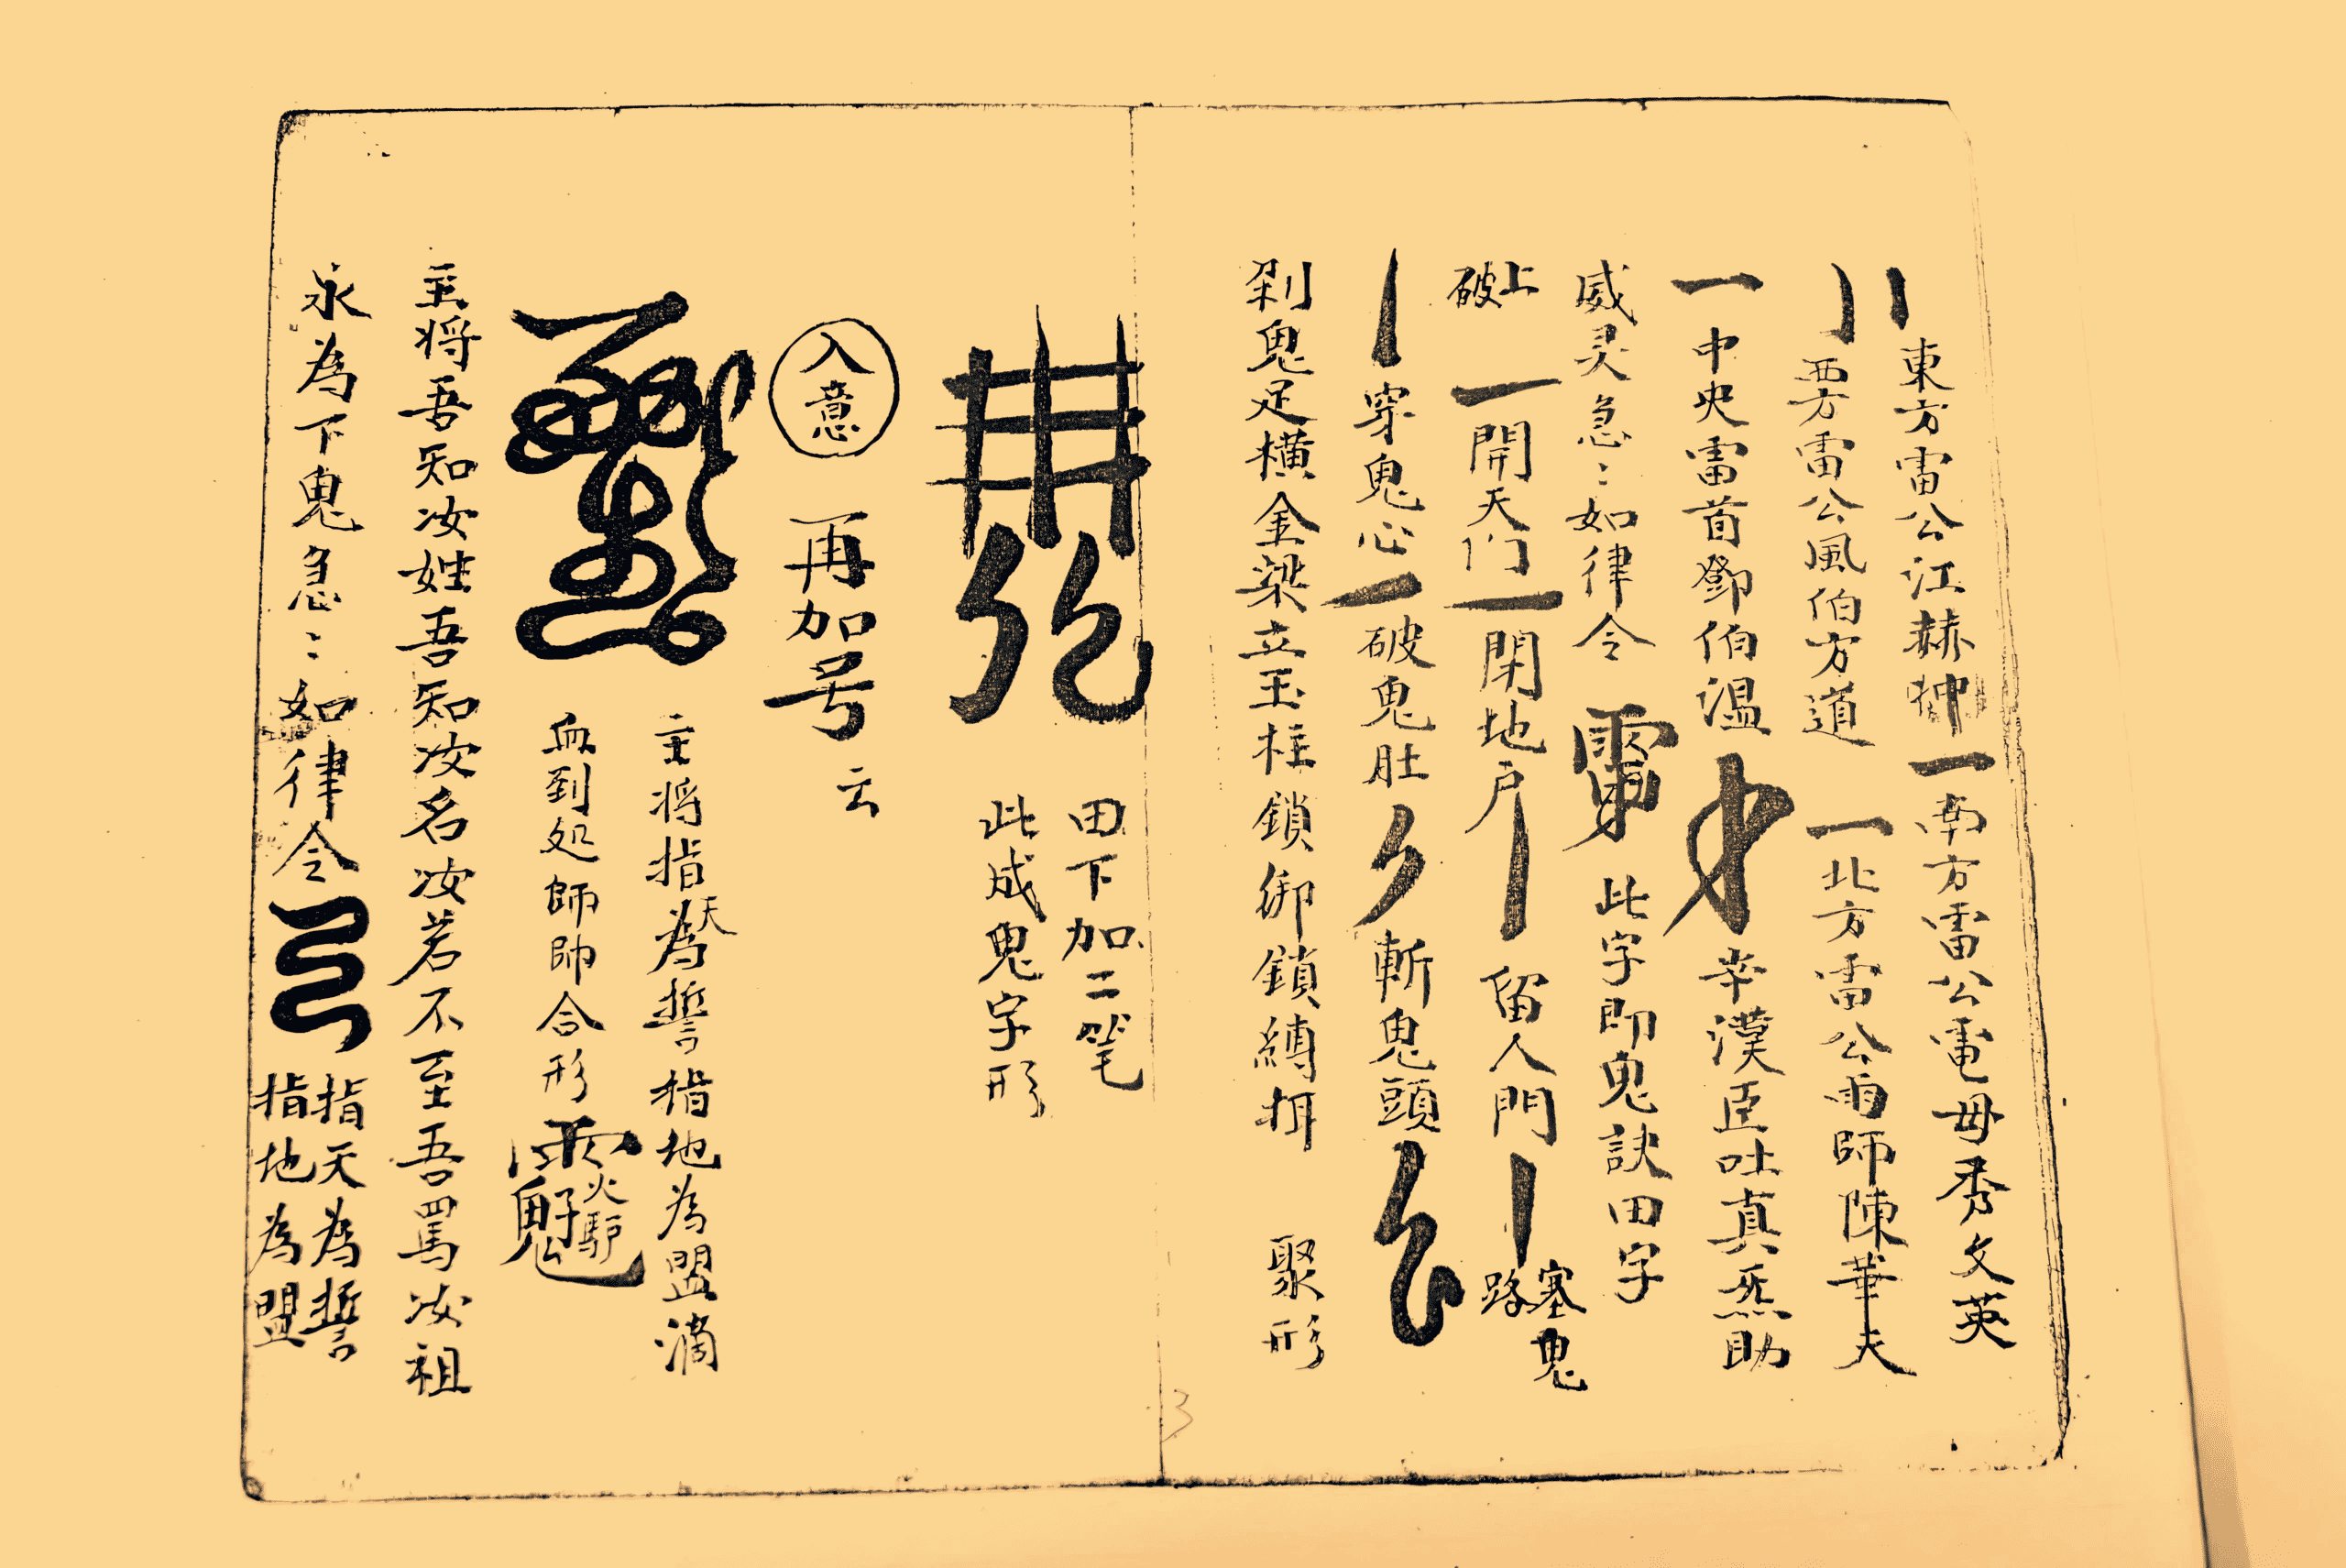 東方雷公江赫冲一南方雷公電母秀文英
西方雷公風伯方道一北方雷公雨師陳華夫
一中央雷首鄧伯溫 辛漢臣吐真炁助
威灵急々如律令 此字即鬼訣田字
上破一開天門一閉地户 留人門 塞鬼路
穿鬼心 破鬼肚 斬鬼頭
刹鬼足橫金梁立玉柱鎖卸鎖縛枷 聚形
田下加二笔
此成鬼字形
入意 再加号 云
主将指天為誓指地為盟滴
血到処師帥合形
主将吾知汝姓吾知汝名汝若不至吾罵汝祖
永為下鬼急々如律令 指天為誓
指地為盟